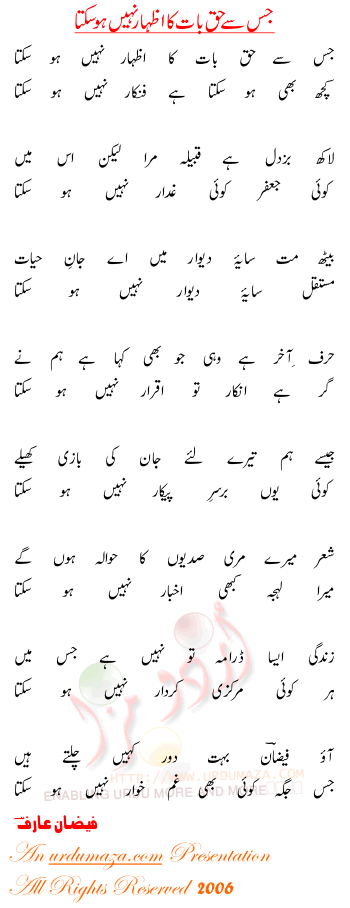 جس سے حق بات کا اظہار نہیں ہو سکتا
جس سے حق بات کا اظہار نہیں ہو سکتا
کچھ بھی ہو سکتا ہے فنکار نہیں ہو سکتا
لاکھ بزدل ہے قبیلہ مرا لیکن اس میں
کوئی جعفر کوئی غدار نہیں ہو سکتا
بیٹھ مت سایۂ دیوار میں اے جانِ حیات
مستقل سایۂ دیوار نہیں ہو سکتا
حرف ِآخر ہے وہی جو بھی کہا ہے ہم نے
گر ہے انکار تو اقرار نہیں ہو سکتا
جیسے ہم تیرے لئے جان کی بازی کھیلے
کوئی یوں برسرِ پیکار نہیں ہو سکتا
شعر میرے مری صدیوں کا حوالہ ہوں گے
میرا لہجہ کبھی اخبار نہیں ہو سکتا
زندگی ایسا ڈرامہ تو نہیں ہے جس میں
ہر کوئی مرکزی کردار نہیں ہو سکتا
آؤ فیضانؔ بہت دور کہیں چلتے ہیں
جس جگہ کوئی بھی غم خوار نہیں ہو سکتا
اردو مزا
HTTP://WWW.URDUMAZA.COM
ENABLING URDU MORE AND MORE
فیضان عارفؔ
An urdumaza.com Presentation
All Rights Reserved 2006